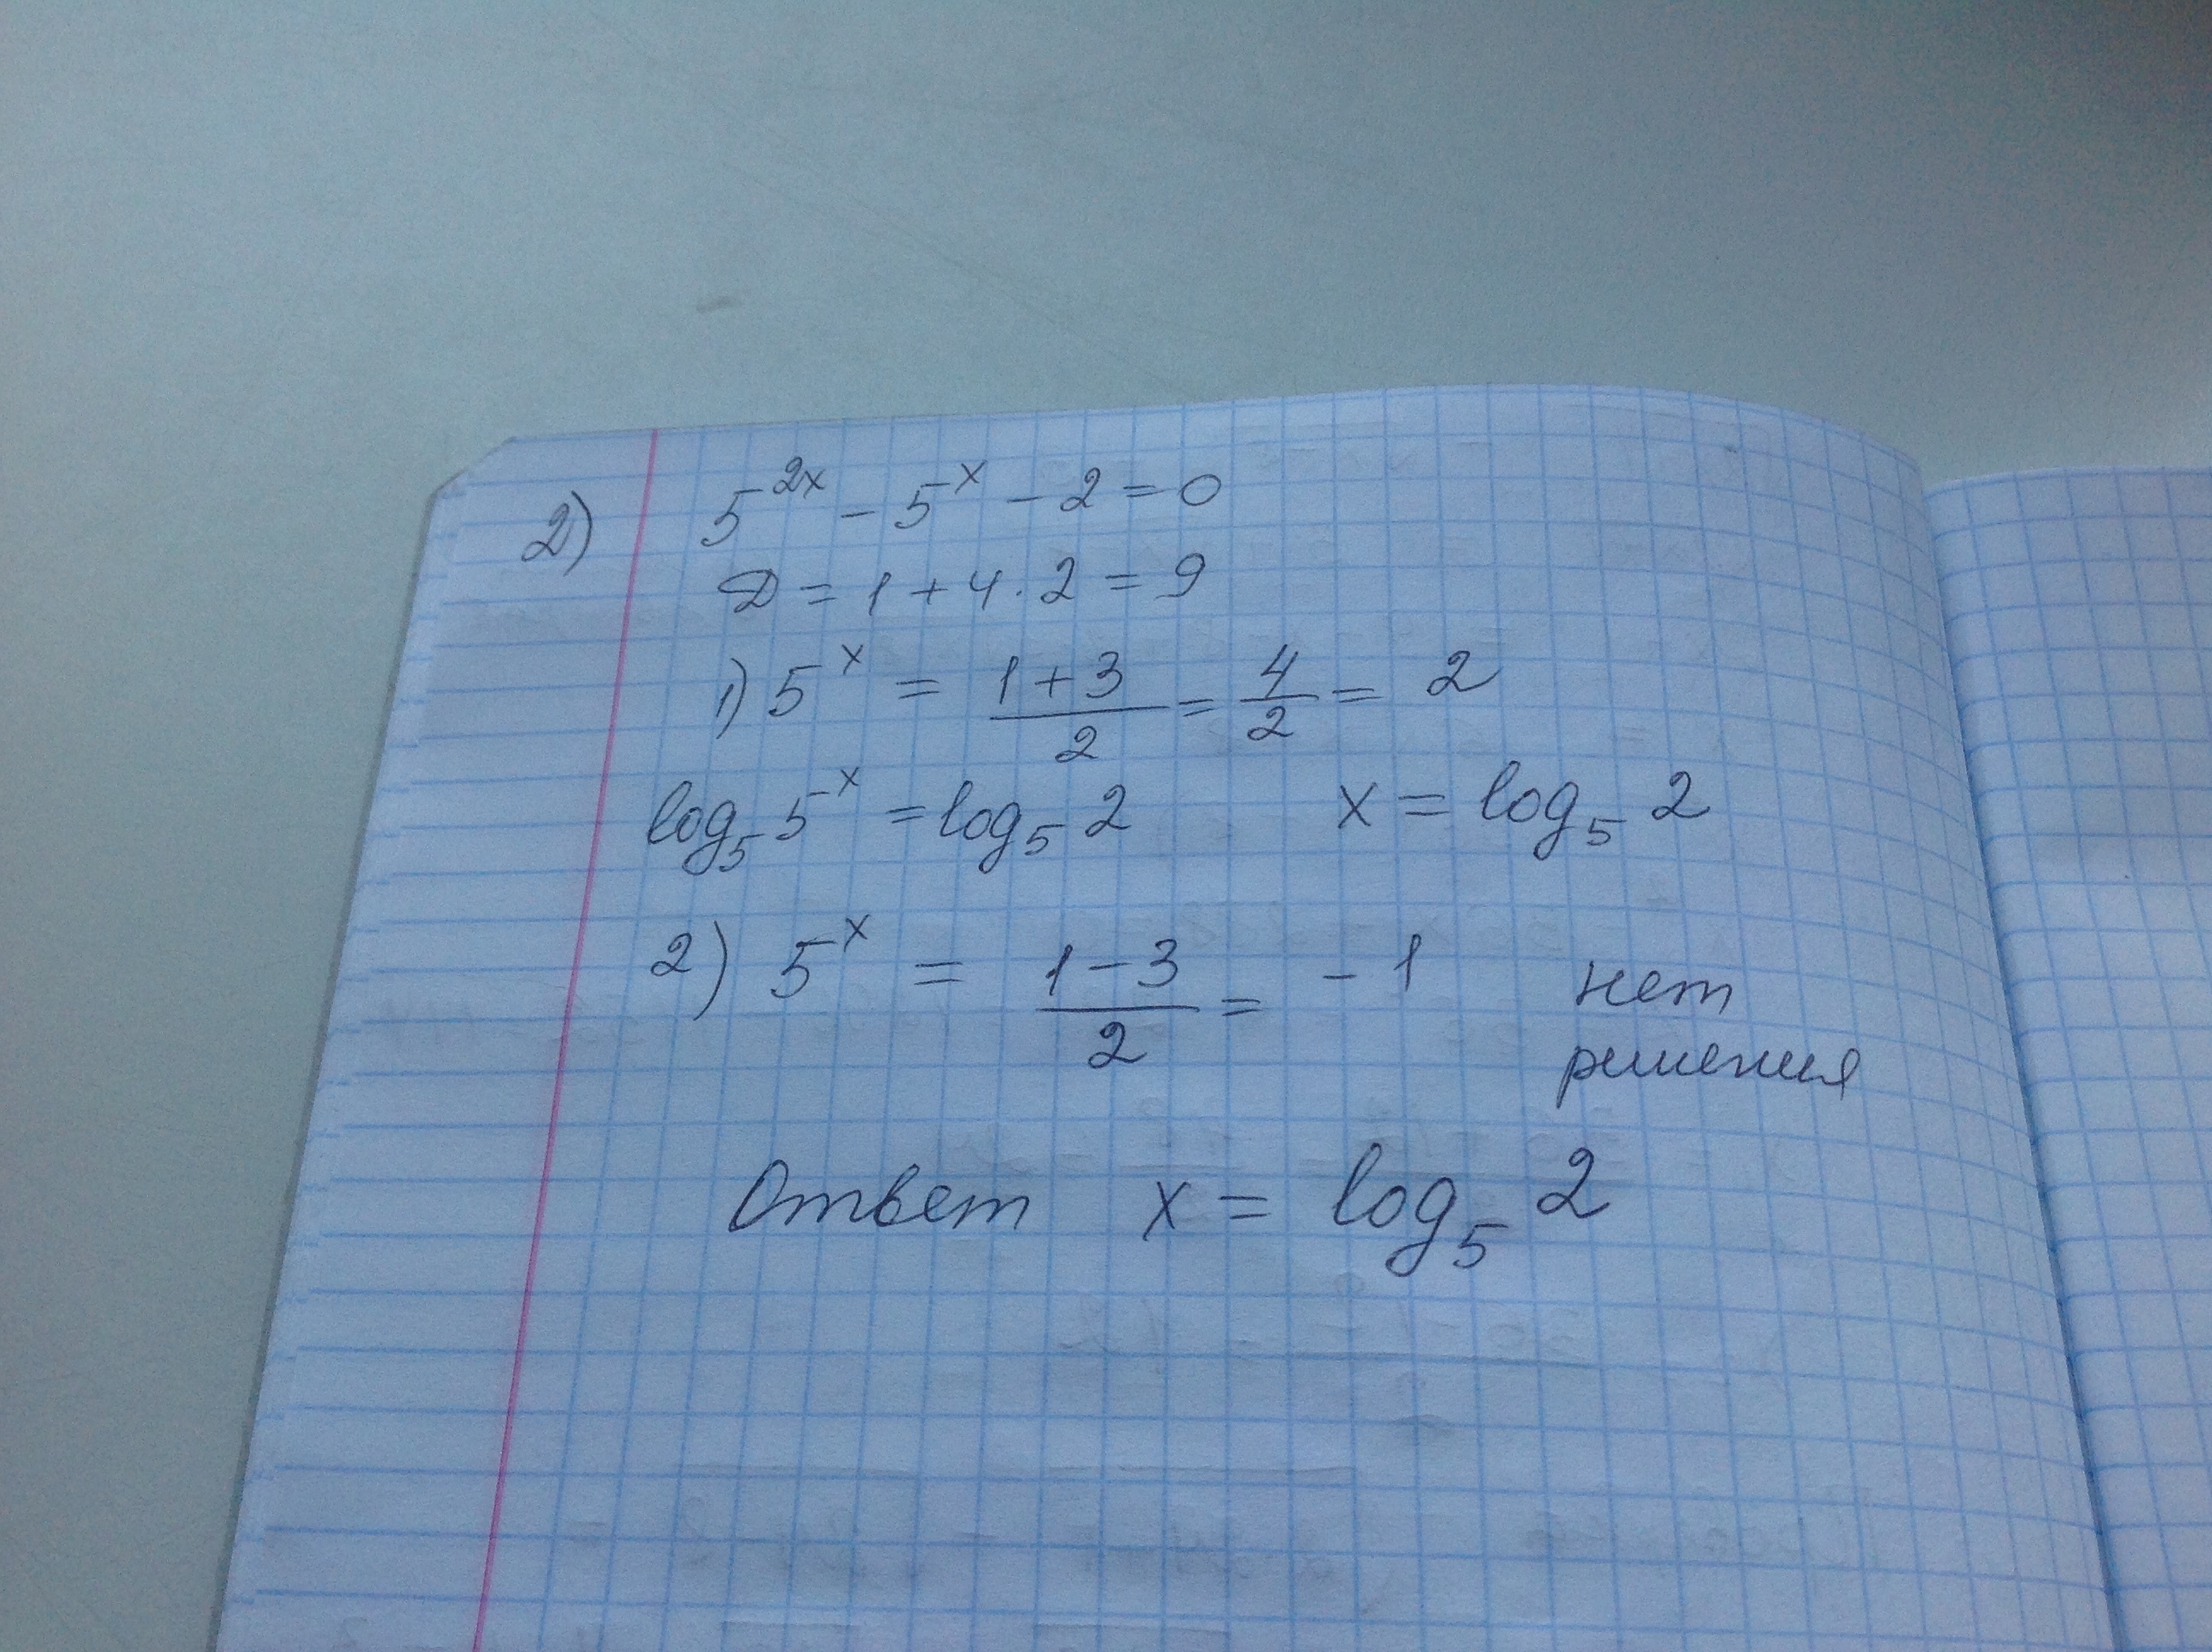 2) 5^{2x} - 5^x - 2 = 0
D = 1 + 4 · 2 = 9
1) 5^x = \frac{1+3}{2} = \frac{4}{2} = 2
log_5 5^x = log_5 2    x = log_5 2
2) 5^x = \frac{1-3}{2} = -1 нет
решения
Ответ x = log_5 2